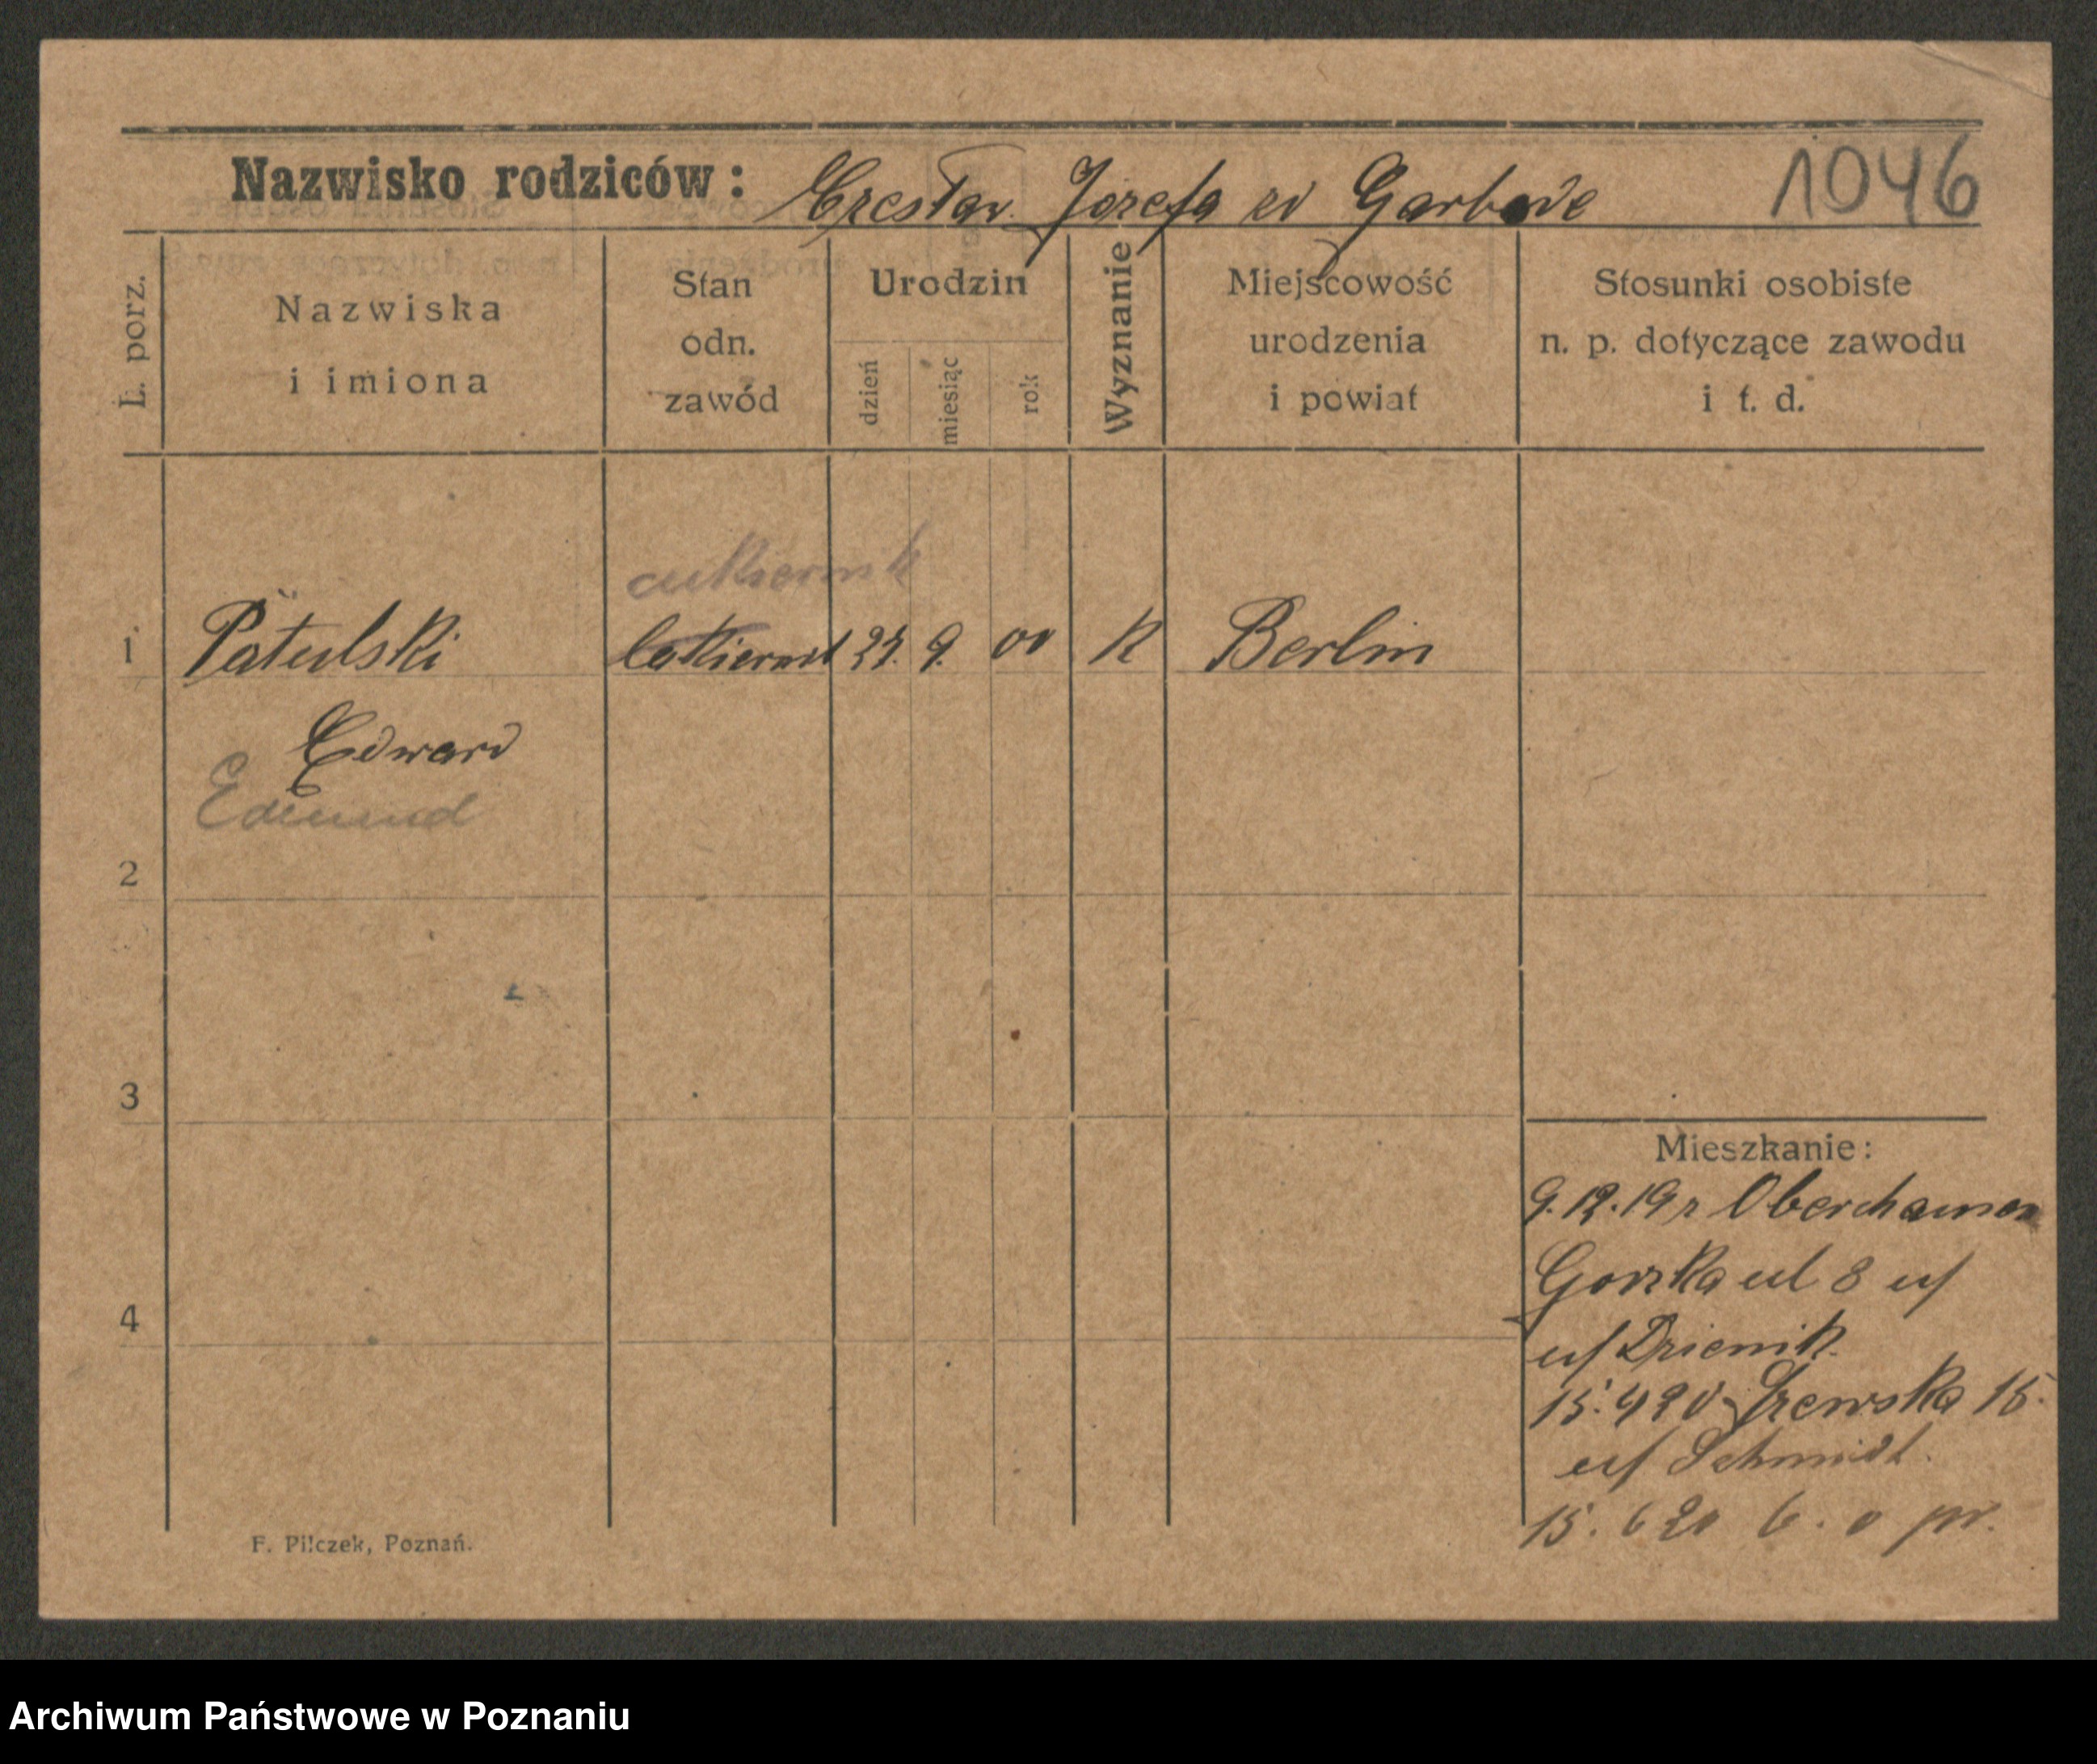 Nazwisko rodziców: Czesław Jozefa zd Garbade 1046
L. porz.
Nazwiska i imiona
Stan odn. zawód
Urodzin
dzień miesiąc rok
Wyznanie
Miejscowość urodzenia i powiat
Stosunki osobiste n. p. dotyczące zawodu i t. d.
cukiernik
1 Pätulski 9. 00 K Berlin
Edward
Edmund
2
3
4
Mieszkanie:
9.12.19 r Oberhausen
Gorzka ul 8 u/
u/ Dzienik
15.4 20 Szewska 15.
u/ Schmidt.
15. 6 20
F. Pilczek, Poznań.
Archiwum Państwowe w Poznaniu